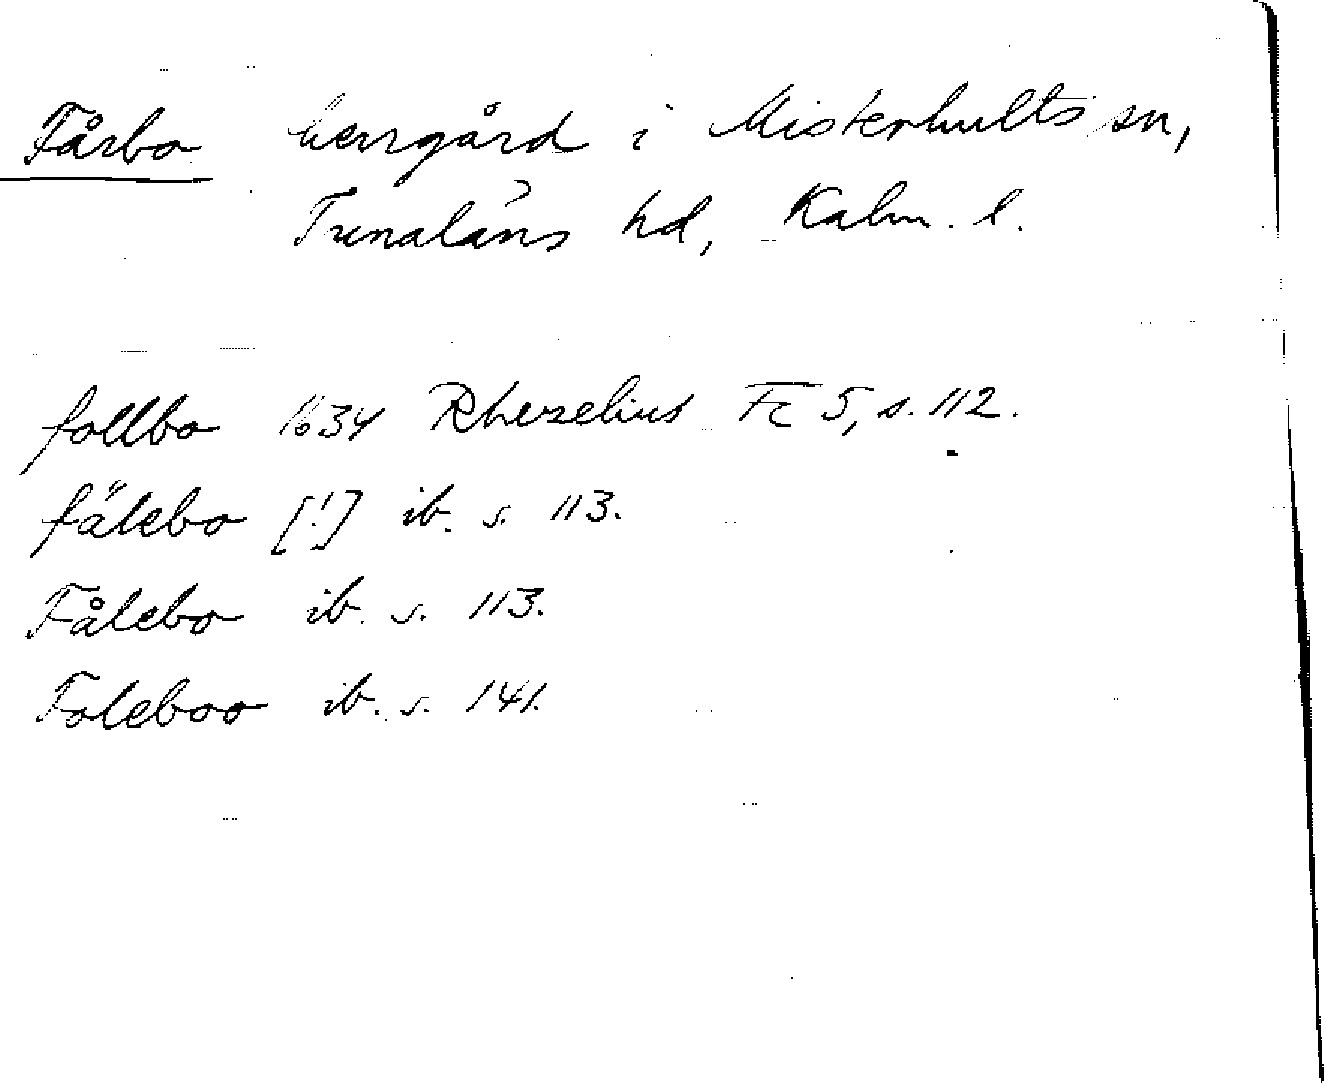 Fårbo herrgård i Misterhults sn,
Tunaläns hd, Kalm. l.
follbo 1634 Rhezelius Fc 5, s. 112.
fälebo [!] ib. s. 113.
Fålebo ib. s. 113.
Foleboo ib. s. 141.